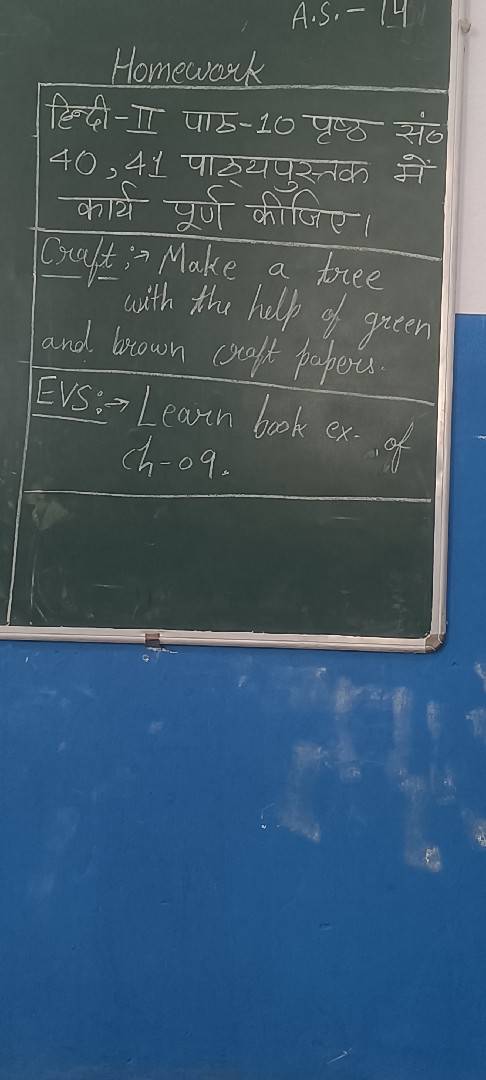 A.S.- 14
Homework
हिन्दी-II पाठ-10 पृष्ठ सं०
40, 41 पाठ्यपुस्तक में
कार्य पूर्ण कीजिए।
Craft:→ Make a tree
with the help of green
and brown craft papers.
EVS:→ Learn book ex. of
ch-09.